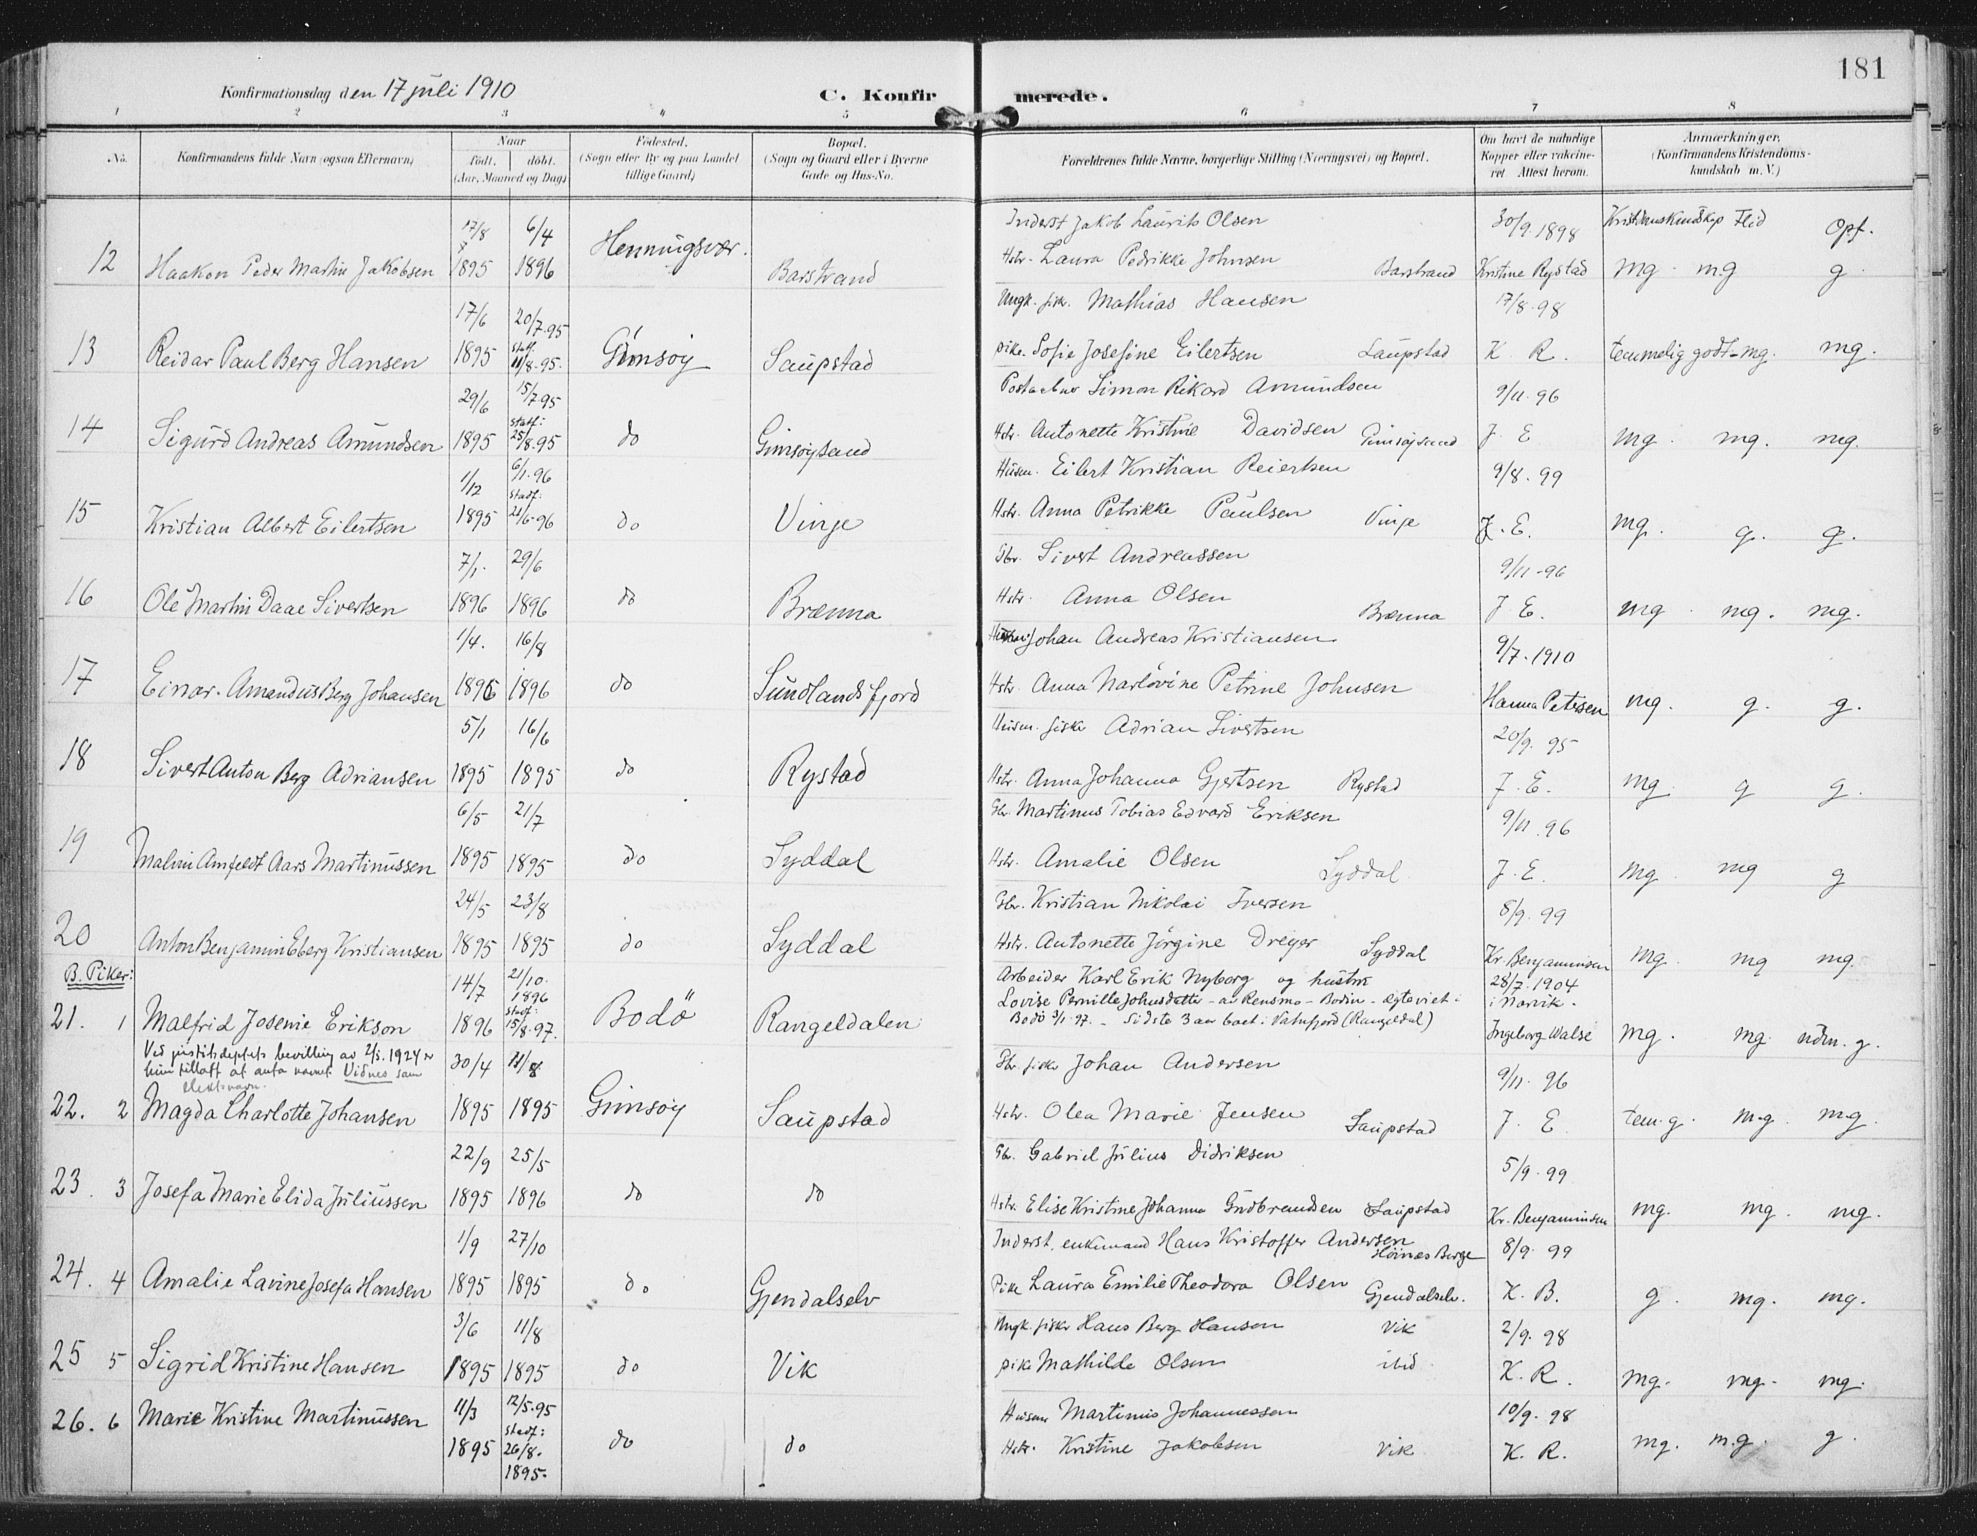 181
Konfirmationsdag den 17 juli 1910
C. Konfirmerede.
1 2 3 4 5 6 7 8
No.
Konfirmandens fulde Navn (ogsaa Efternavn)
Naar
født. døbt.
(Aar, Maaned og Dag)
Fødested.
(Sogn eller By og paa Landet
tillige Gaard)
Bopæl.
(Sogn og Gaard eller i Byerne
Gade og Hus-No.
Forældrenes fulde Navne, borgerlige Stilling (Næringsvei) og Bopæl.
Om havt de naturlige
Kopper eller vakcine-
ret. Attest herom.
Anmærkninger.
(Konfirmandens Kristendoms-
kundskab m. V.)
17/8 6/4 Inderst Jakob Laurits Olsen 30/9.1898 Kristenskundskap Flid Opf.
12 Haakon Peder Martin Jakobsen 1895 1896 Henningsvær. Barstrand Hstr. Laura Pedrikke Johnsen Barstrand Kristine Rystad mg. mg g
17/6 20/7.95 Ungk. fisk. Mathias Hansen 17/8.98
13 Reidar Paul Berg Hansen 1895 stadf. 11/8.95. Gimsøy Saupstad pike. Sofie Josefine Eilertsen Saupstad K. R. temmelig godt - mg. mg.
29/6 15/7.95 Simon Rikard Amundsen 9/11.96
14 Sigurd Andreas Amundsen 1895 stadf: 25/8.95 do Gimsøysand Hstr. Antonette Kristine Davidsen Gimsøysand J. E mg. mg. mg.
1/12 6/1.96 Husm. Eilert Kristian Reiertsen 9/8.99
15 Kristian Albert Eilertsen 1895 stadf: 21/6.96 do Vinje Hstr. Anna Petrikke Paulsen Vinje J. E. mg. g. g.
7/1. 29/6 Gbr. Sivert Andreassen 9/11-96
16 Ole Martin Daae Sivertsen 1896 1896 do Brenna Hstr. Anna Olsen Brenna J. E. mg. mg. mg.
1/4. 16/8 Johan Andreas Kristiansen 9/7.1910
17 Einar Amandus Berg Johansen 1896 1896 do Sundlandsfjord Hstr. Anna Narlovine Petrine Johnsen Hanna Petersen mg. g. g.
5/1 16/6 Husm. fisker Adrian Sivertsen 20/9. 95
18 Sivert Anton Berg Adriansen 1895 1895 do Rystad Hstr. Anna Johanna Gjertsen Rystad J. E. mg. g g.
6/5 21/7 Gbr. Martinus Tobias Edvard Eriksen 9/11.96
19 Malvin Arnfeldt Aars Martinussen 1895 1895 do Syddal Hstr. Amalie Olsen Syddal J. E. mg. mg g
24/5 23/8 Gbr. Kristian Nikolai Iversen 8/9.99
20 Anton Benjamin Eberg Kristiansen 1895 1895 do Syddal Hstr. Antonette Jørgine Dreyer Syddal Kr. Benjaminsen mg. mg mg.
B. Piker:
14/7 21/10. 1896 Arbeider Karl Erik Nyborg og hustru 28/7.1904
Lovise Pernille Johnsdatter - av Rensmo - Bodin - egteviet i i Narvik.
21. 1 Malfrid Josenie Erikson 1896 stadf: 15/8.97. Bodø Rangeldalen Bodø 3/1.97. - Sidste 3 aar boet i Vatnfjord (Rangeldal) Ingeborg Walsø mg. mg. udm. g.
Ved justitsdeptets bevilling av 2/5.1924 er
hun tillatt at anta navnet Vidnes som
slektsnavn.
30/4 11/8 Gbr. fisker Johan Andersen 9/11.96
22. 2 Magda Charlotte Johansen 1895 1895 Gimsøy Saupstad Hstr. Olea Marie Jensen Saupstad J. E. tem. g. mg. mg.
22/9 25/5 Gbr. Gabriel Julius Didriksen 5/9.99
23. 3 Josefa Marie Elida Juliussen 1895 1896 do do Hstr. Elise Kristine Johanna Gudbrandsen Saupstad Kr. Benjaminsen mg. mg. mg.
1/9 27/10 Inderst, enkemand Hans Kristoffer Andersen Høinæs Berge 8/9.99
24. 4 Amalie Lavine Josefa Hansen 1895 1895 do Gjendalselv Pike Laura Emilie Theodora Olsen Gjendalselv. K. B. g. mg. mg.
3/6 11/8 Ungk. fisker Hans Berg Hansen Vik 2/9.98
25 5 Sigrid Kristine Hansen 1895 1895 do Vik pike Mathilde Olsen ibid. K. R. mg. mg. mg.
11/3 12/5.95 Husm Martinus Johannessen 10/9.98
26. 6 Marie Kristine Martinussen 1895 stadf: 26/8. 1895. do do Hstr. Kristine Jakobsen Vik K. R. mg. mg. g.